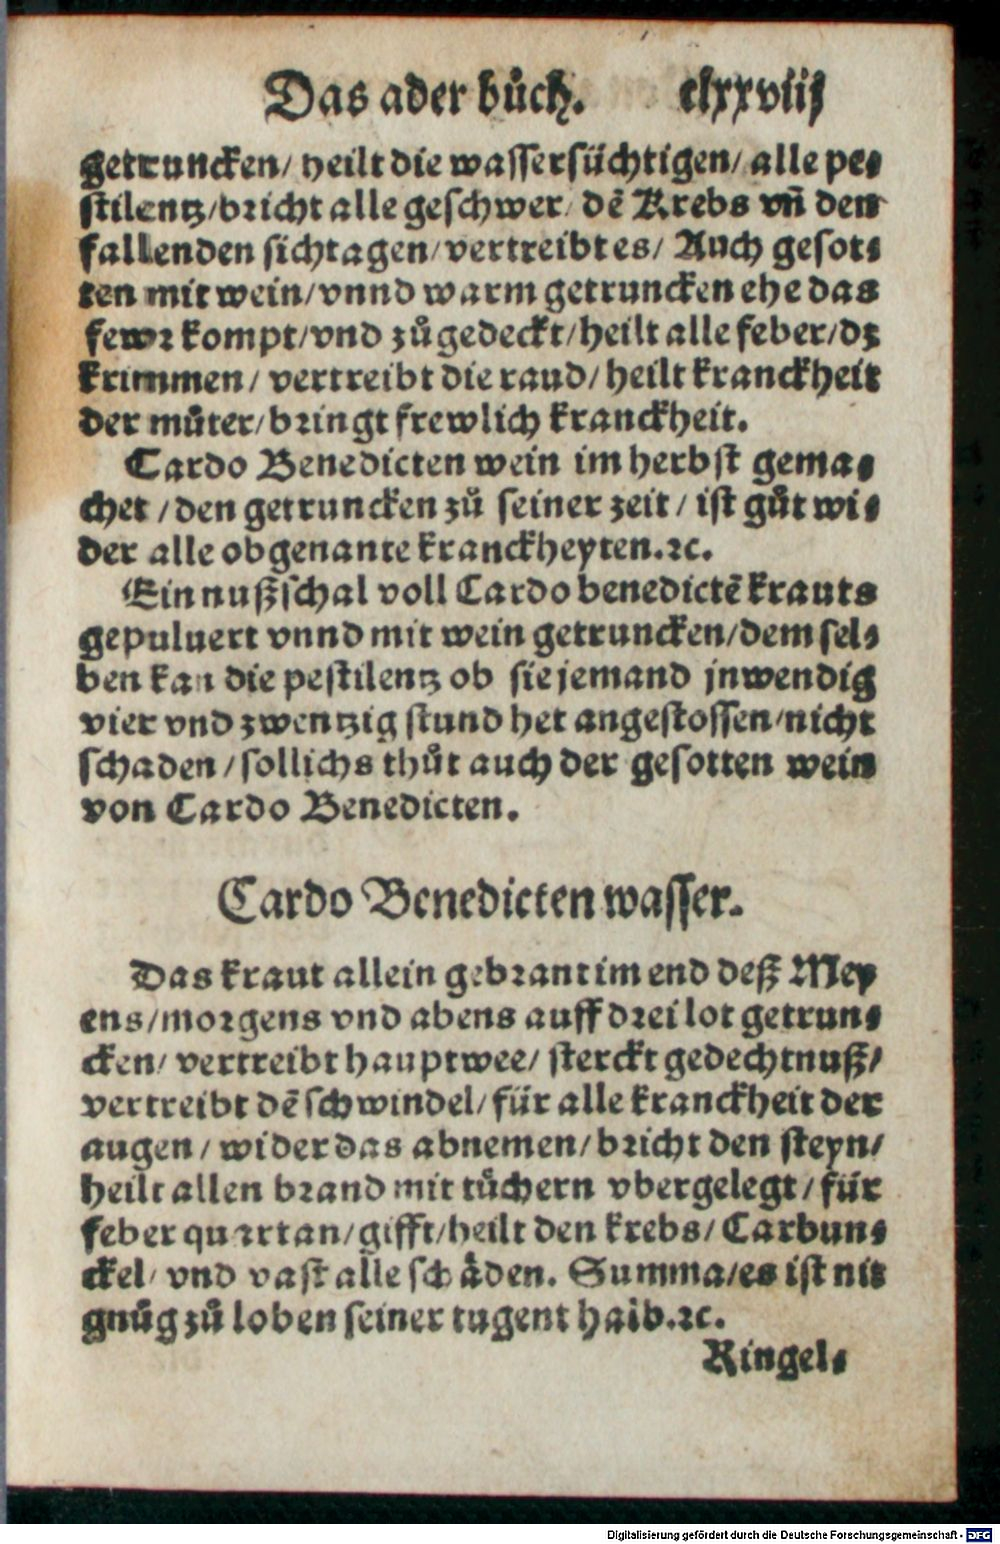 Das ader bůch. clxxviij
getruncken/ heilt die wassersüchtigen/ alle pe⸗
stilentz/bricht alle geschwer/ dē Krebs vñ den
fallenden sichtagen/vertreibt es/ Auch gesot⸗
ten mit wein/vnnd warm getruncken ehe das
fewr kompt/vnd zůgedeckt/heilt alle feber/dz
krimmen/ vertreibt die raud/ heilt kranckheit
der můter/bringt frewlich kranckheit.
Cardo Benedicten wein im herbst gema⸗
chet /den getruncken zů seiner zeit / ist gůt wi⸗
der alle obgenante kranckheyten.ꝛc.
Ein nußschal voll Cardo benedictē krauts
gepuluert vnnd mit wein getruncken/dem sel⸗
ben kan die pestilentz ob sie jemand jnwendig
vier vnd zwentzig stund het angestossen/nicht
schaden /sollichs thůt auch der gesotten wein
von Cardo Benedicten.
Cardo Benedicten wasser.
Das kraut allein gebrant im end deß Mey
ens/morgens vnd abens auff drei lot getrun⸗
cken/ vertreibt hauptwee/ sterckt gedechtnuß/
vertreibt dē schwindel/ für alle kranckheit der
augen / wider das abnemen/bricht den steyn/
heilt allen brand mit tůchern vbergelegt / für
feber quartan/gifft/heilt den krebs/ Carbun⸗
ckel/ vnd vast alle schåden. Summa/es ist nit
gnůg zů loben seiner tugent halb.ꝛc.
Ringel⸗
Digitalisierung gefördert durch die Deutsche Forschungsgemeinschaft - DFG